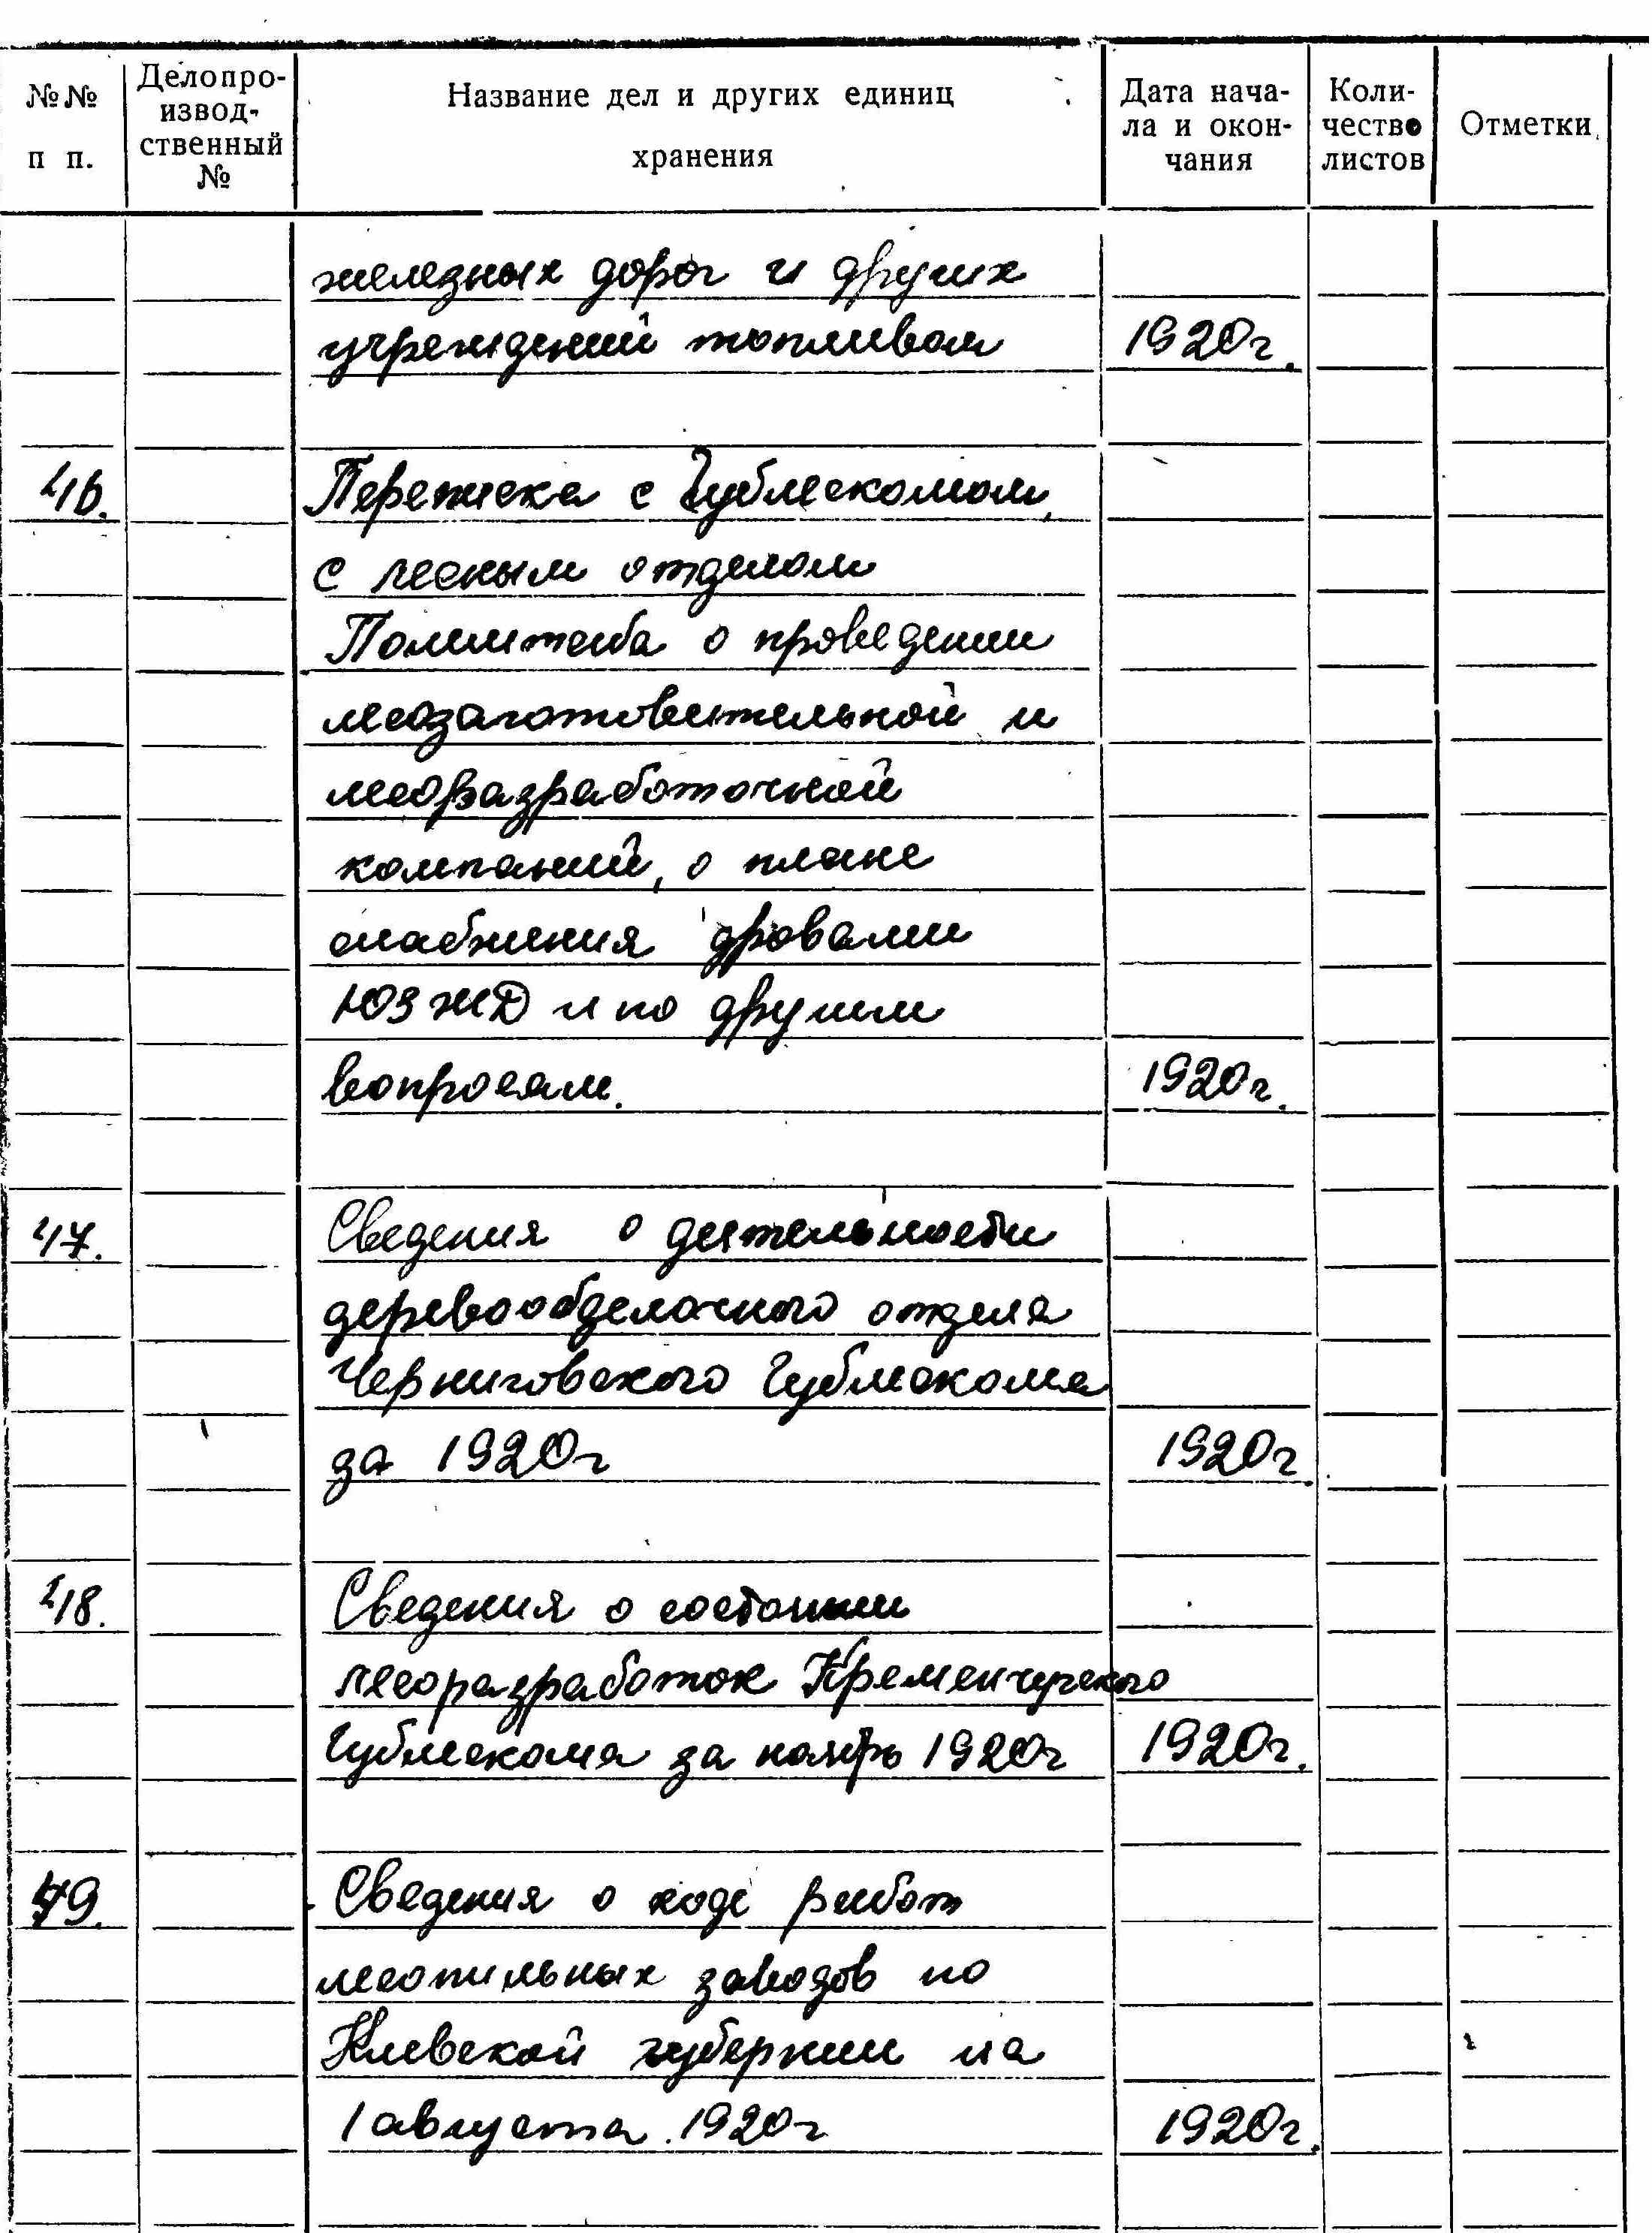 №№ п п.
Делопро-
извод-
ственный
№
Название дел и других единиц
хранения
Дата нача-
ла и окон-
чания
Коли-
чество
листов
Отметки
железных дорог и других
учреждений топливом 1920г.
46. Переписка с Гублескомом,
с лесным отделом
о проведении
лесозаготовительной и
лесоразработочной
компаний, о плане
снабжения дровами
ЮЗЖД и по другим
вопросам. 1920г.
47. Сведения о деятельности
деревообделочного отдела
Черниговского Гублескома
за 1920г 1920г.
48. Сведения о состоянии
лесоразработок Кременчугского
Гублескома за ноябрь 1920г 1920г.
49. Сведения о ходе работ
лесопильных заводов по
Киевской губернии на
1 августа 1920г 1920г.